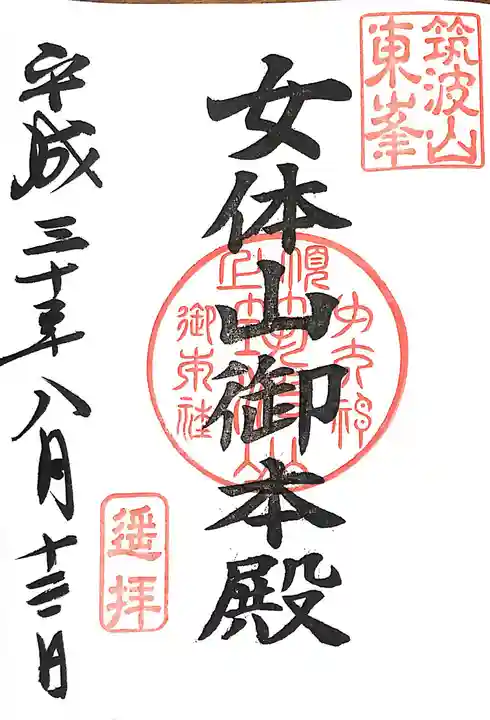 筑波山
東峯
女体山御本殿
御本社
遥拝
平成三十年八月十三日